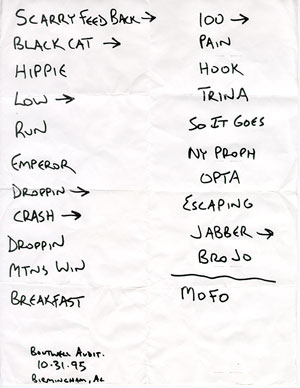 SCARRY FEED BACK →
BLACK CAT →
HIPPIE
LOW →
RUN
EMPEROR
DROPPIN →
CRASH →
DROPPIN
MTNS WIN
BREAKFAST
BOUTWELL AUDIT.
10·31·95
BIRMINGHAM, AL
100 →
PAIN
HOOK
TRINA
SO IT GOES
NY PROPH
OPTA
ESCAPING
JABBER →
BROJO
MOFO